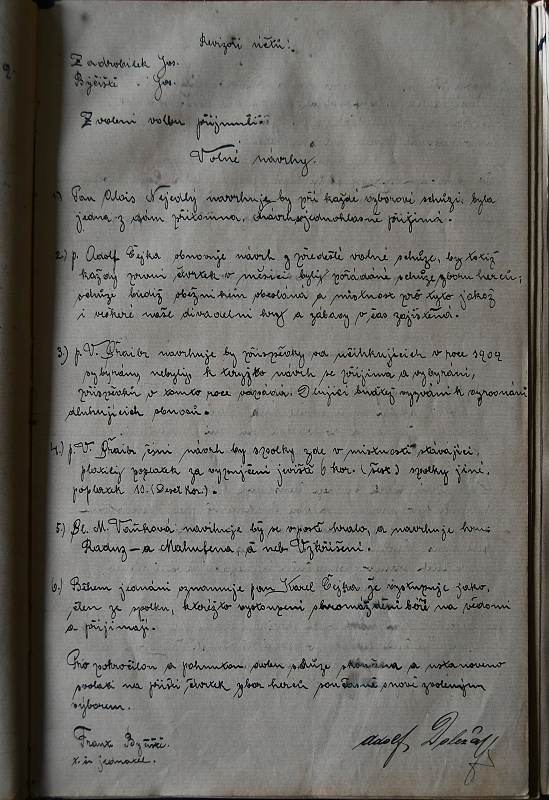 Revizoři účtů:
Zadrobílek Jos.
Býčiště Jos.
Zvolení volbu přijmuli.
Volné návrhy.
1.) Pan Alois Nejedlý navrhuje by při každé výborové schůzi, byla
jedna z dam přítomna, návrh jednohlasně přijímá.
2.) p. Adolf Čejka obnovuje návrh z předešlé valné schůze, by totiž
každý první čtvrtek v měsíci byly pořádané schůze sboru herců;
schůze budiž oběžníkem obeslána a místnost pro tyto jakož
i veškeré naše divadelní hry a zábavy v čas zajištěna.
3.) p. V. Šraibr navrhuje by příspěvky od účinkujících v roce 1909
vybýrány nebyly k terýžto návrh se přijímá a vybýrání,
příspěvků v tomto roce odpadá. Dlužící buďtež vyzváni k vyrovnání
dlužujících obnosů.
4.) p. V. Šraibr činí návrh by spolky zde v místnosti stávající,
platily poplatek za vypůjčení jeviště 6 kor. (šest) spolky jiné,
poplatek 10. (Deset Kor.).
5.) Sl. M. Vaňková navrhuje by se v postě hrálo, a navrhuje hru
Radúz-a Mahulena, a neb Vzkříšení.
6.) Během jednání oznamuje pan Karel Čejka že vystupuje jako,
člen ze spolku, kteréžto vystoupení shromáždění béře na vědomí
a přijímají.
Pro pokročilou a pohnutou dobu schůze skončena a ustanoveno
svolati na příští čtvrtek sbor herců současně s nově zvoleným
výborem.
Frant. Býčiště.
t. č. jednatel.
Adolf